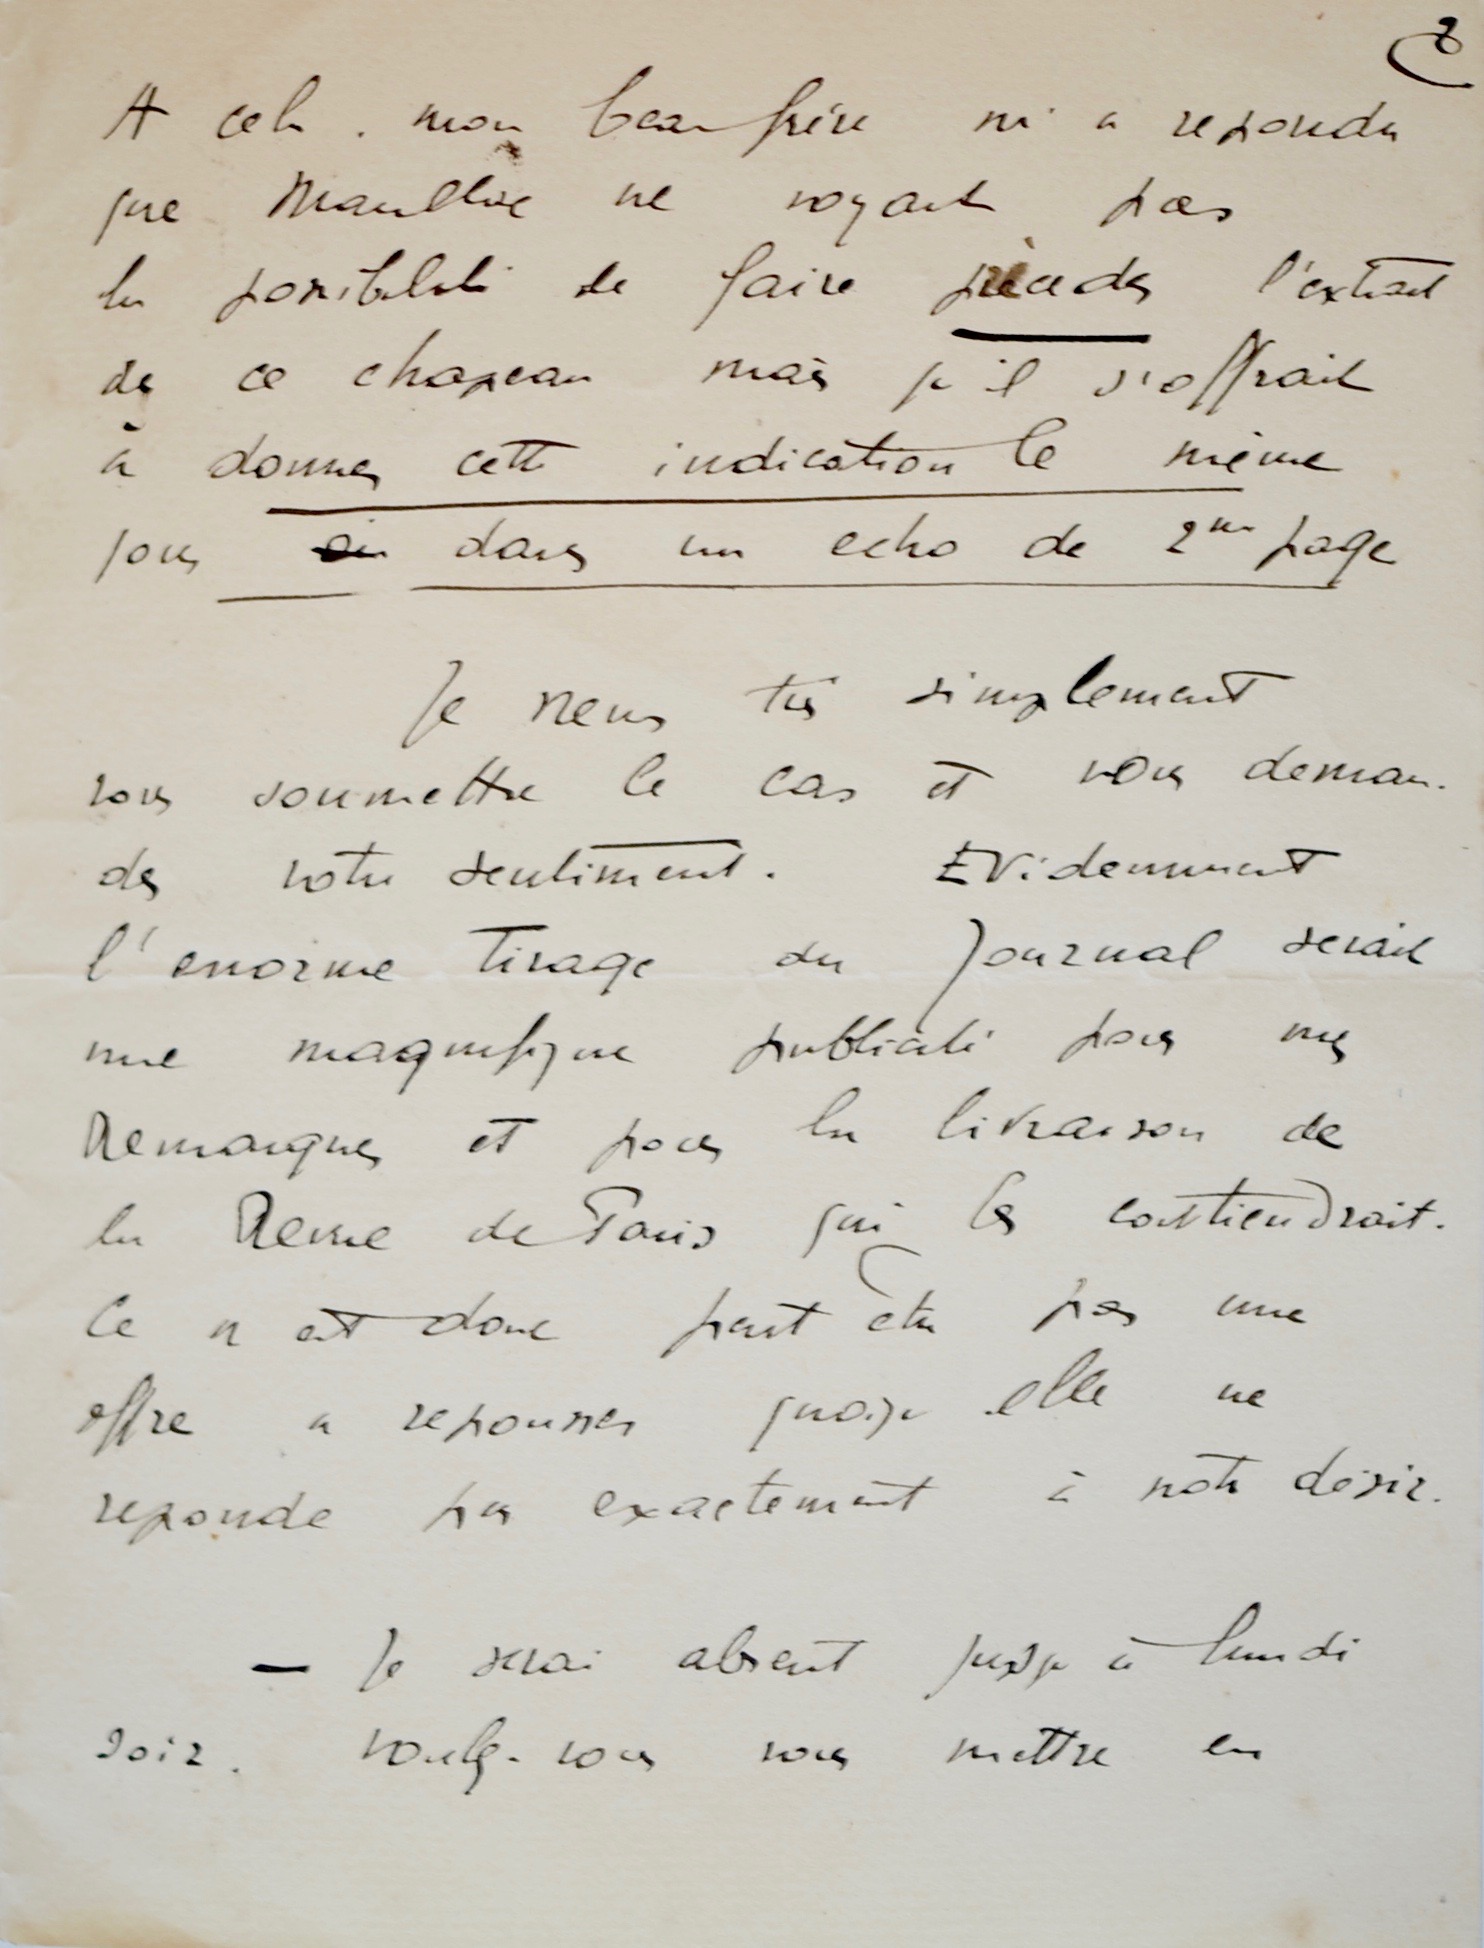 2
A cela . mon beau frère m'a repondu
que ne voyait pas
la possibilité de faire précéder l'extrait
de ce chapeau mais qu'il s'offrait
à donner cette indication le même
jour dans un echo de 2me page
Je viens très simplement
vous soumettre le cas et vous deman-
der votre sentiment. Evidemment
l'enorme Tirage du Journal serait
une magnifique publicité pour mes
Remarques et pour la livraison de
la Revue de Paris qui les contiendrait.
Ce n'est donc peut être pas une
offre a repousser quoiqu'elle ne
reponde pas exactement à notre désir.
— Je serai absent jusqu'à lundi
soir. voulez-vous vous mettre en